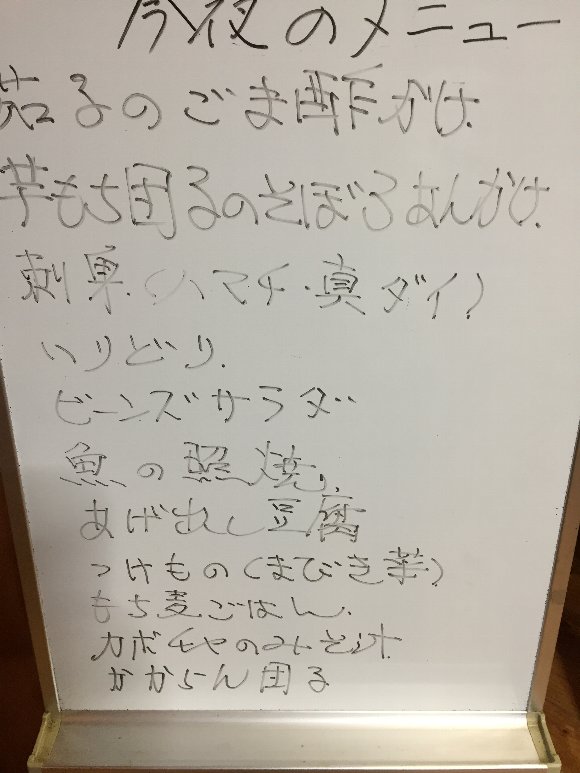 今夜のメニュー
茄子のごま酢がけ
芋もち団るのそぼろあんかけ
刺身(ハマチ・真ダイ)
いりどり
ビーンズサラダ
魚の照焼
あげ出し豆腐
つけもの(まびき菜)
もち麦ごはん
カボチャのみそ汁
かからん団る